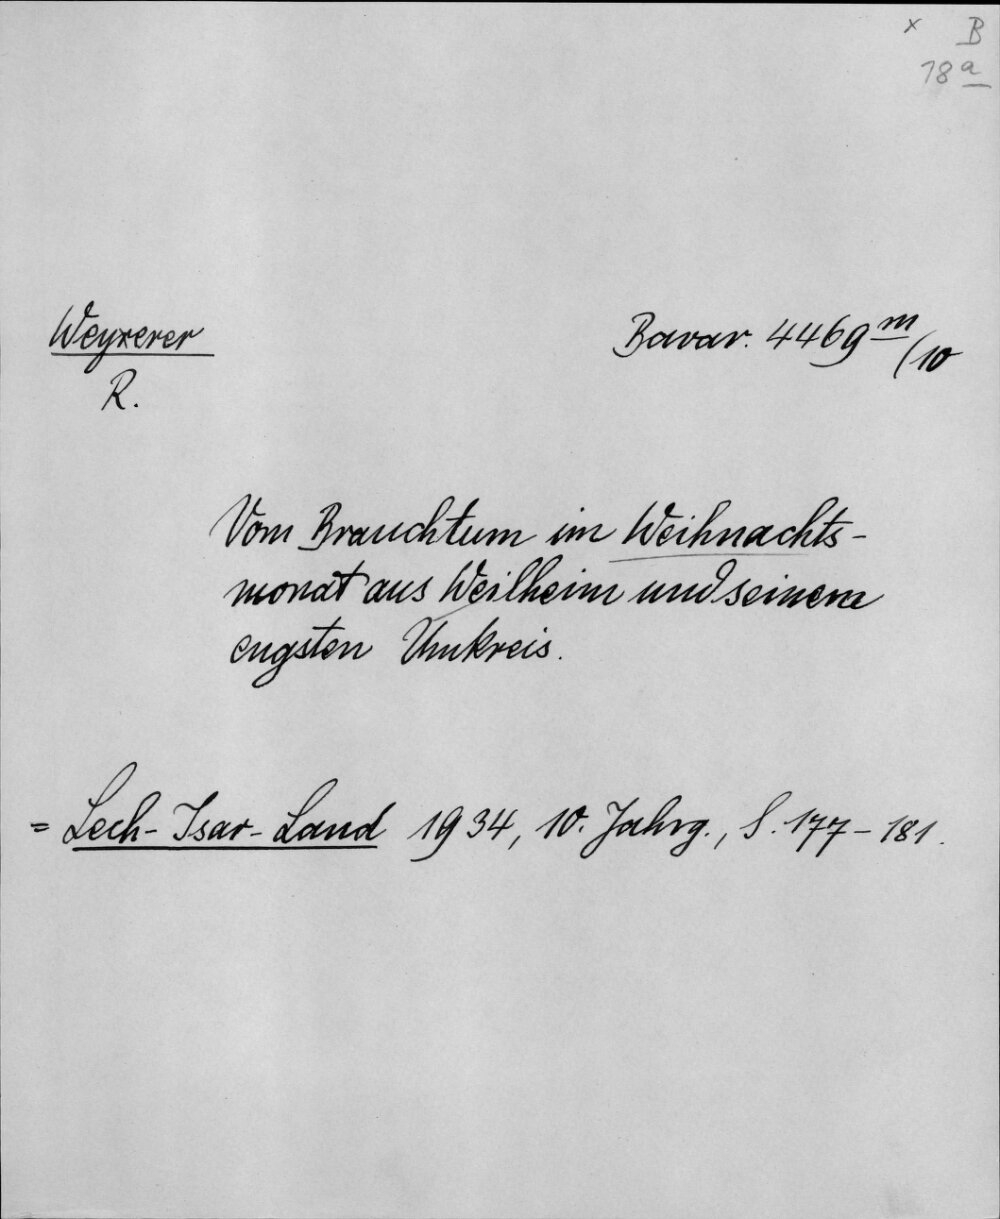 x B
18 a
Weyxerer
R.
Bavar. 4469 m/10
Vom Brauchtum im Weihnachts-
monat aus Weilheim und seinem
engsten Umkreis.
= Lech-Isar-Land 1934, 10. Jahrg., S. 177-181.